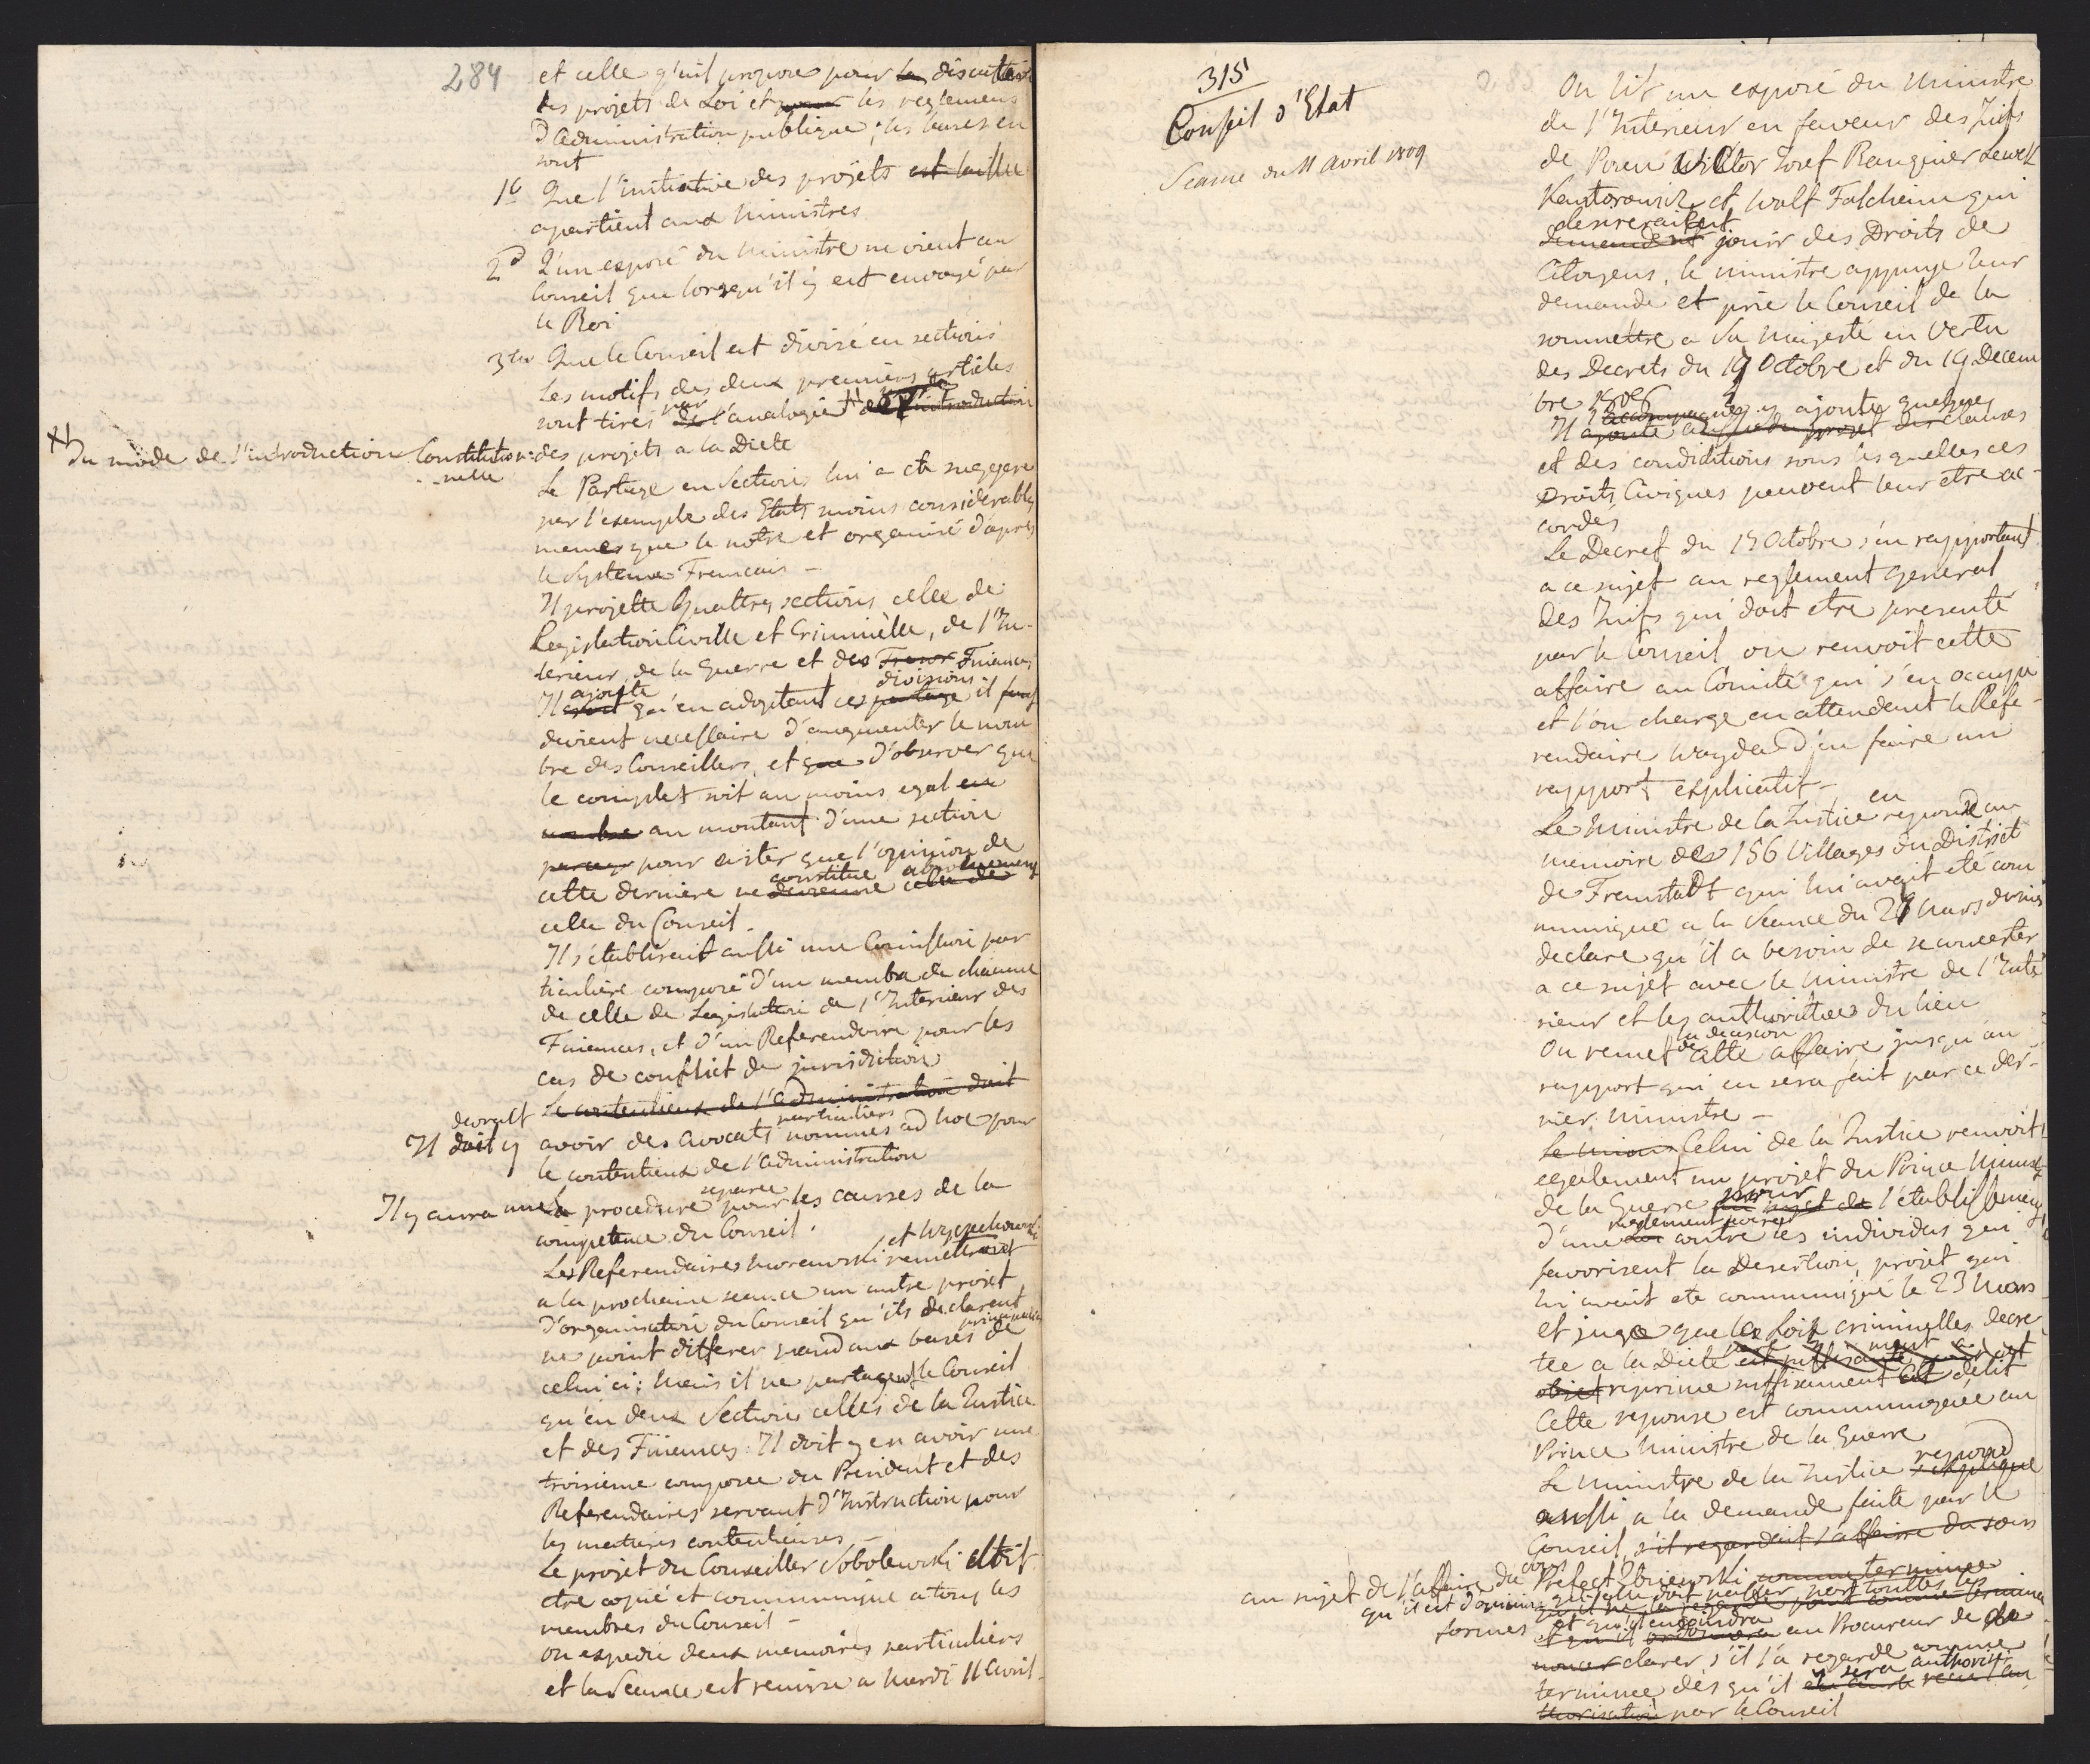 284
et celle qu'il propose pour la discuter
les projets de Loi et pour les reglemens
D'administration publique; les bases en
sont
1o Que l'initiative des projets est laissée
apartient aux Ministres
2d Q'un exposé du Ministre ne vient au
Conseil que lorsqu'il y est envoyé par
le Roi
3tio Que le Conseil est divisé en sections
Les motifs des deux premiers articles
sont tirés par de l'analogie # de l'introduction
# du mode de l'introduction Constitution-
nelle
des projets a la Diete
Le Partage en Sections lui a ete suggeré
par l'exemple des Etats moins considerables
memes que le notre et organisé d'apres
le Systeme Francais –
Il projette Quattre sections celle de
Legislation Civille et Criminelle, de l'In-
terieur, de la Guerre et des Tresor Finances
ajoute divisions
Il croit qu'en adoptant ces partage il
devient necessaire d'augmenter le nom
bre des Conseillers, et que d'observer que
le complet soit au moins egal en
nombre au montant d'une section
pour eviter que l'opinion de
constitue absolument
cette derniere ne devienne celle de
celle du Conseil.
Il s'etablirait aussi une Comission par
ticuliere composé d'un membre de chacune
de celle de Legislation de l'Interieur des
Finances, et d'un Referendaire pour les
cas de conflict de jurisdiction
Le contentieux de l'administration doit
devrait particuliers
Il doit y avoir des avocats nommés ad hoc pour
le contentieux de l'administration
separee
Il y aura une La procedure pour les causes de la
competence du Conseil.
et Wyczechowski
Les Referendaires Morawski remettront
a la prochaine seance un autre projet
d'organisation du Conseil qu'ils declarent
principales
ne point differer quand aux bases de
celui ci; Mais il ne partagent le Conseil
qu'en deux Sections celles de la Justice
et des Finances. Il doit y en avoir une
troisieme composee du President et des
Referendaires servant d'Instruction pour
les matieres contentieuses –
Le projet du Conseiller Sobolewski doit
etre copié et communiqué a tous les
membres du Conseil –
on expedie deux memoires particuliers
et la Seance est remise a Mardi 11 Avril.
315
Conseil d'Etat
Seance du 11 Avril 1809
On lit un exposé du Ministre
de l'Interieur en faveur des Juifs
de Posen Wiktor Josef Banquier Lewek
Kantorowicz et Wolf Falcheim qui
desireraient
demandent jouir des Droits de
Citoyens, le ministre appuye leur
demande et prie le Conseil de la
soumettre a Sa Majesté en vertu
des Decrets du 19 Octobre et du 19 Decem
bre 1808
l'accompagne, y ajoute quelques
Il ajoute aussi du projet des clauses
et des condiditions sous les quelles ces
Droits Civiques peuvent leur etre ac-
cordés
Le Decret du 19 Octobre s'en rapportant
a ce sujet au reglement general
Des Juifs qui doit etre presenté
par le Conseil on renvoit cette
affaire au Comité qui s'en occupe
et l'on charge en attendant le Refe-
rendaire Woyda d'en faire un
rapport explicatif –
en
Le Ministre de la Justice reponse au
memoire des 156 Villages du District
de Fraustadt qui lui avait ete com
muniqué a la Seance du 28 Mars dernier
declare qu'il a besoin de se concerter
a ce sujet avec le Ministre de l'Inte
rieur et les authorites du lieu
la decision
On remet de cette affaire jusqu'au
rapport qui en sera fait par ce der-
nier Ministre –
Le Celui de la Justice renvoit
egalement un projet du Prince Ministre
pour
de la Guerre au sujet de l'etablissement
reglement
d'une Loi contre les individus qui
favorisent la Desertion, projet qui
lui avait ete communiqué le 23 Mars
et juge que les Lois criminelles decre
tee a la Diete est suffisante pour cet
objet reprime suffisament cet delit
Cette reponse est communiquee au
Prince Ministre de la Guerre
repond
Le Ministre de la Justice s'explique
aussi a la demande faite par le
Conseil, s'il regardait l'affaire du sous
au sujet de l'affaire du sous Prefect comme terminee
qu'il est d'opinion qu'elle doit passer par touttes les
qu'il ne la regarde point comme terminee
formes et qu'il enjoindra
et qu'il ordonnera au Procureur de de
noncer clarer s'il l'a regarde comme
terminee dès qu'il y sera authorisé
thorisation par le Conseil